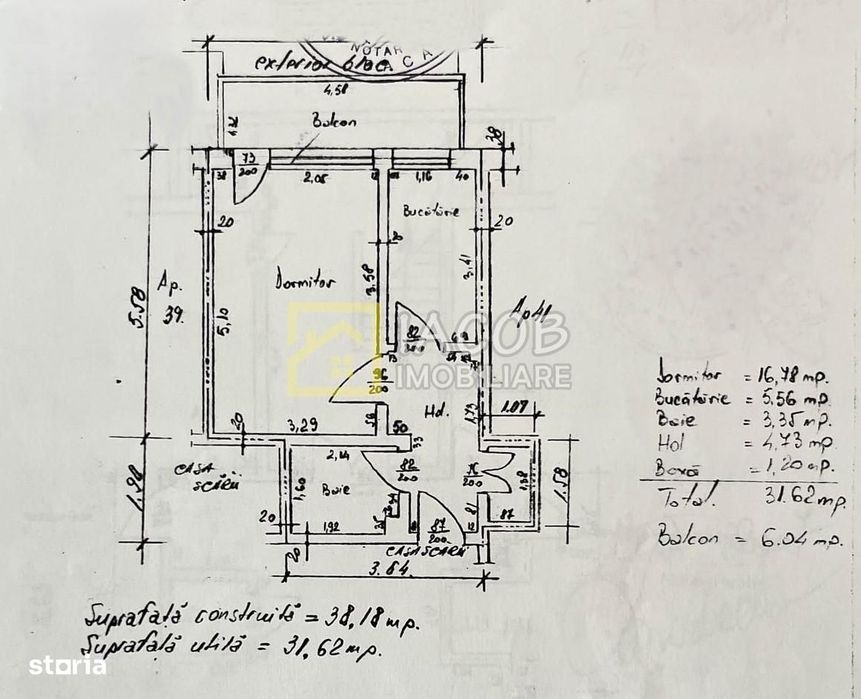 NOTAR
exterior bloc
4,58
1,32
Balcon
38
73
200
38
2,05
1,16
40
20
Bucătărie
20
8
Dormitor
3,58
3,41
Ap.
39.
5,58
5,10
Ap 41
IACOB
IMOBILIARE
82
200
96
200
Hd.
1,73
1.07
56
50
3,29
20
33
CASA
SCĂRII
2,14
82
200
76
200
1,98
1,60
Baie
1,38
1.58
20
1,92
25
87
200
81
87
20
CASA SCĂRII
3.64
Dormitor = 16,78 mp.
Bucătărie = 5,56 mp.
Baie = 3,35 mp.
Hol = 4,73 mp.
Boxă = 1,20 mp.
Total. 31.62 mp.
Balcon = 6.04 mp.
Suprafață construită = 38,18 mp.
Suprafață utilă = 31,62 mp.
storia